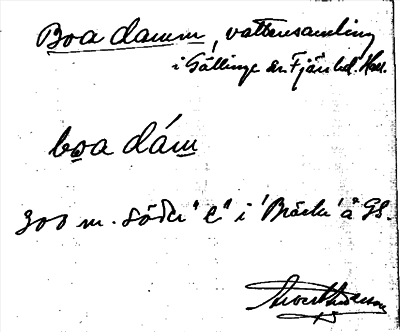 Boa damm, vattensamling
i Gällinge sn Fjäre hd. Hall.
boa dám
300 m. söder "C" i 'Bräcka' å GS.